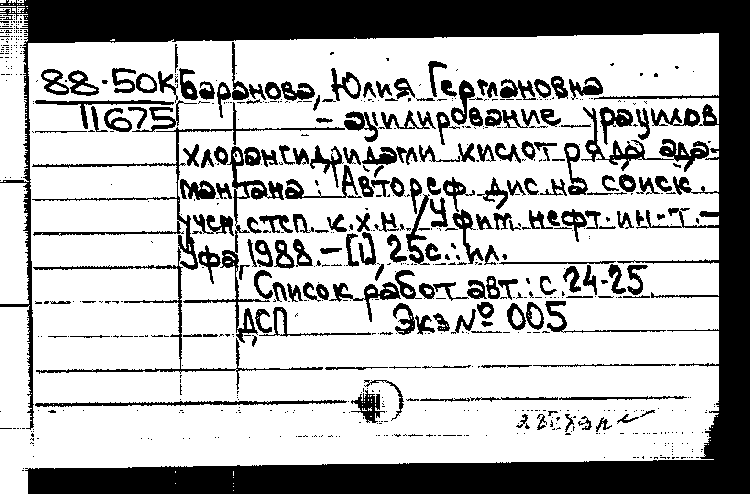 88-50К Баранова, Юлия Германовна
11675 - ацилирование урацилов
хлорангидридами кислот ряда ада-
мантана : Автореф. дис. на соиск.
учен. степ. к.х.н. / Уфим. нефт. ин-т. -
Уфа, 1988. - [1] 25с. : ил.
Список работ авт.: с. 24-25.
ДСП Экз № 005